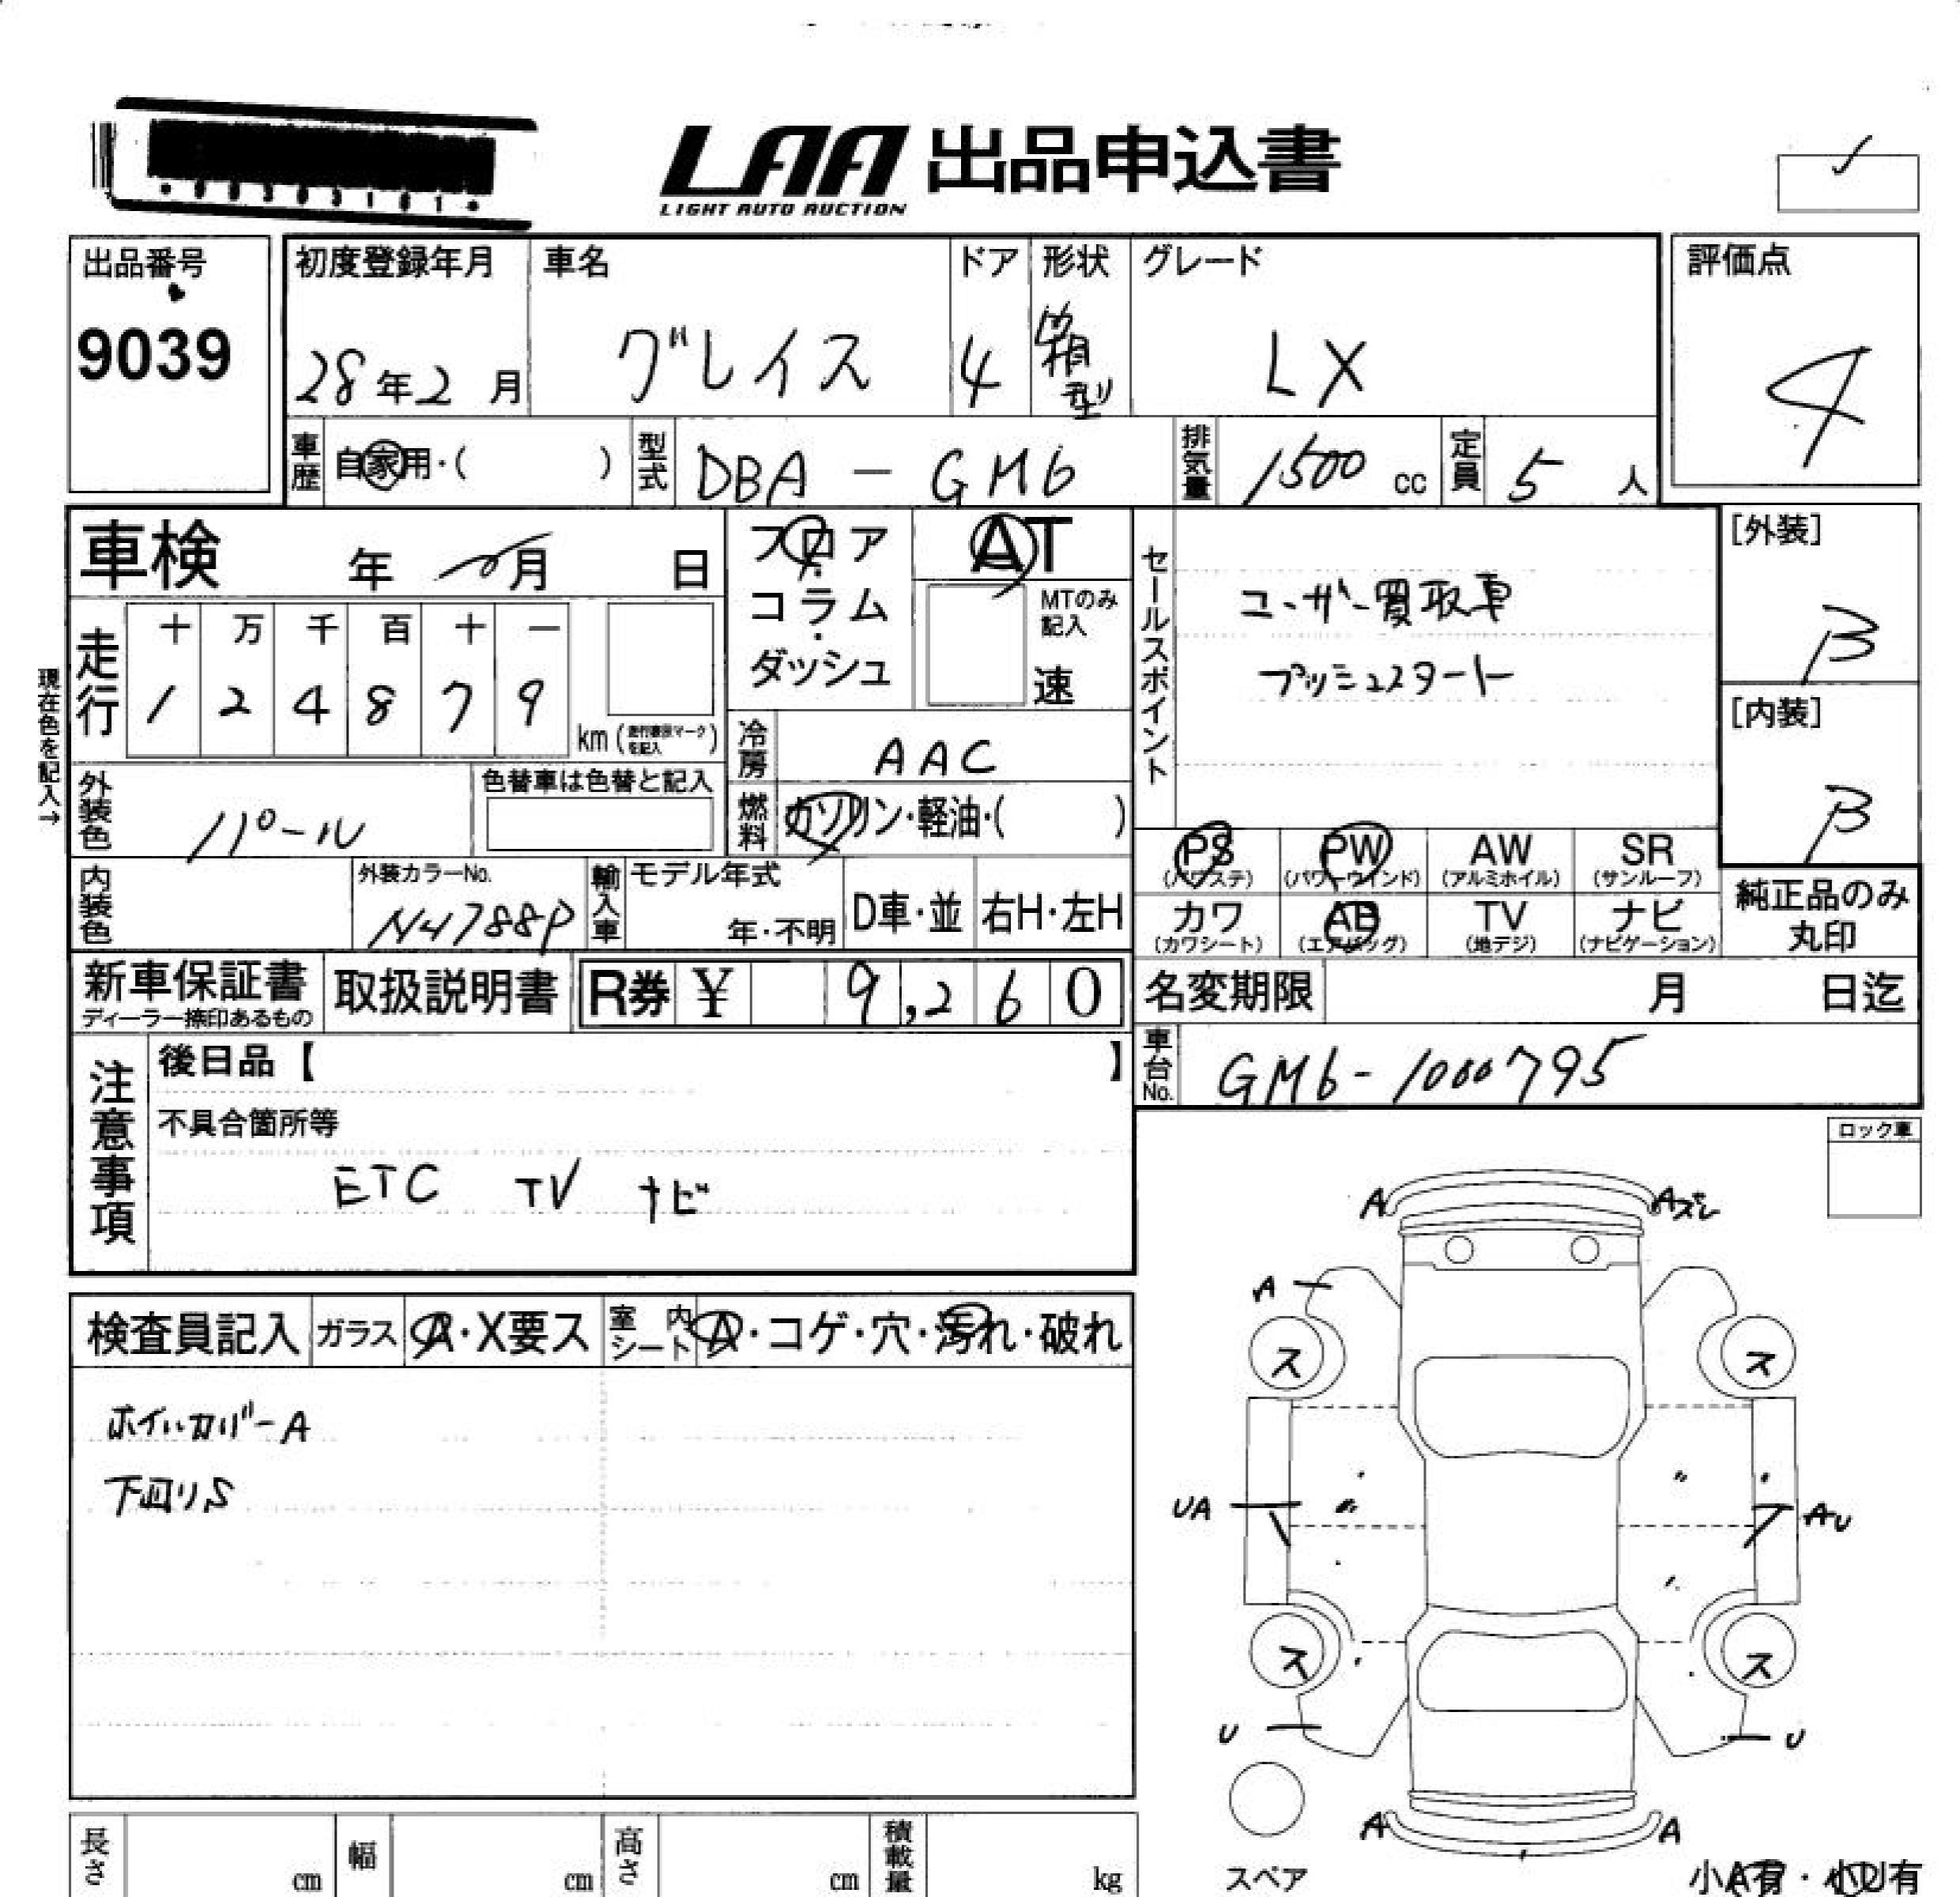 LAA 出品申込書
LIGHT AUTO AUCTION
出品番号
9039
初度登録年月
28年2月
車名
グレイス
ドア
4
形状
箱型
グレード
LX
評価点
4
車歴
自家用・( )
型式
DBA-GM6
排気量
1500 cc
定員
5人
車検 年 月 日
フロア・コラム・ダッシュ
AT
MTのみ記入
速
セールスポイント
ユーザー買取車
プッシュスタート
[外装]
B
[内装]
B
現在色を記入→
走行
十 万 千 百 十 一
1 2 4 8 7 9
km
冷房
AAC
燃料
ガソリン・軽油・( )
外装色
パール
色替車は色替と記入
内装色
外装カラーNo.
NH788P
輸入車
モデル年式
年・不明
D車・並
右H・左H
PS (パワステ)
PW (パワーウインド)
AW (アルミホイル)
SR (サンルーフ)
カワ (カワシート)
AB (エアバッグ)
TV (地デジ)
ナビ (ナビゲーション)
純正品のみ丸印
新車保証書
ディーラー捺印あるもの
取扱説明書
R券 ¥ 9,260
名変期限 月 日迄
車台No.
GM6-1000795
注意事項
後日品【 】
不具合箇所等
ETC TV ナビ
ロック車
検査員記入
ガラス A・X要ス
室内シート A・コゲ・穴・汚れ・破れ
ホイルカバーA
下回りS
A Aズレ
A
ス ス
UA AU
ス ス
U U
A A
スペア
小A有・小U有
長さ cm
幅 cm
高さ cm
積載量 kg